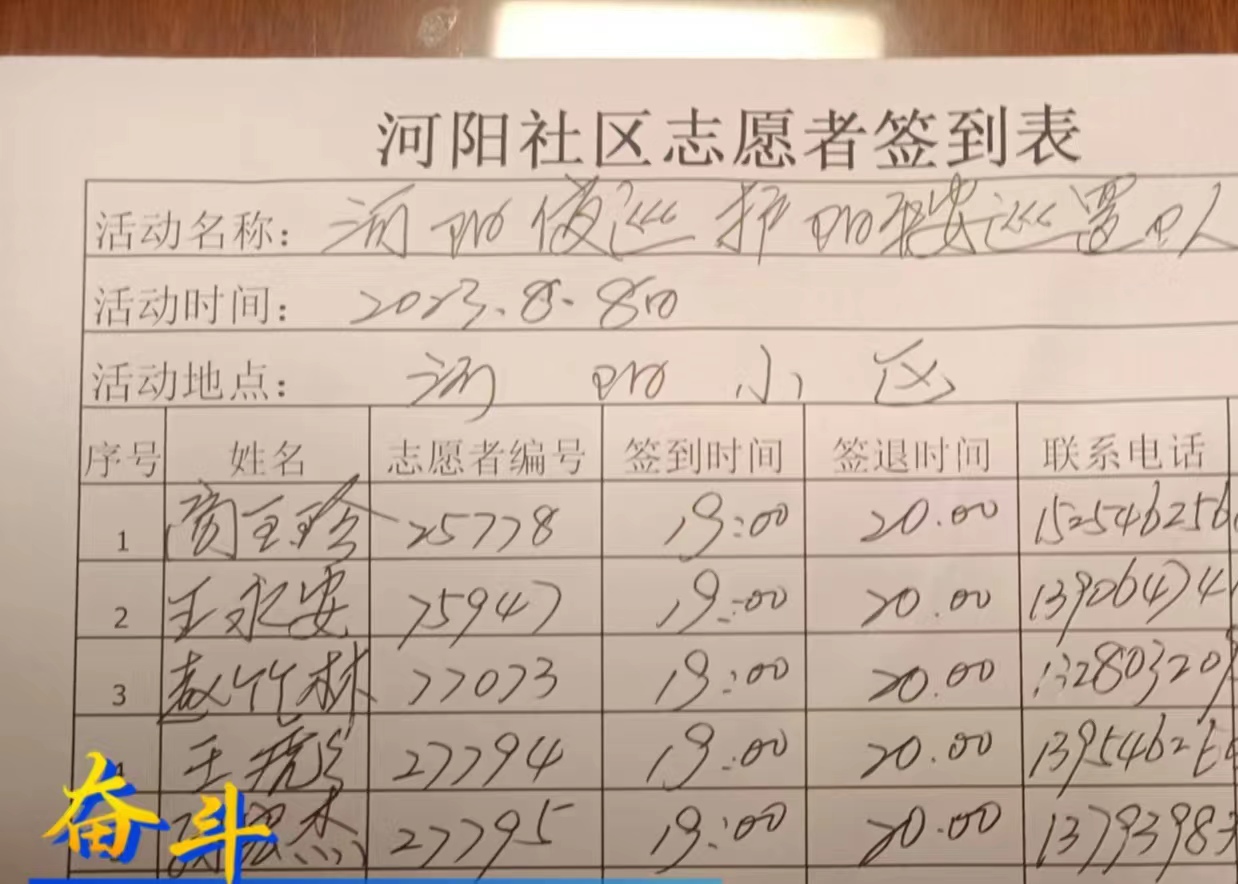 河阳社区志愿者签到表
活动名称: 河阳 巡护 阳 巡逻队
活动时间: 2023.8.8日
活动地点: 河阳小区
序号 姓名 志愿者编号 签到时间 签退时间 联系电话
1 25778 19:00 20.00 152546256
2 王永安 75947 19:00 20.00 13906474
3 赵竹林 77073 19:00 20.00 132803209
王 27794 19:00 20.00 13954626
杰 27795 19:00 20.00 13793983
奋斗